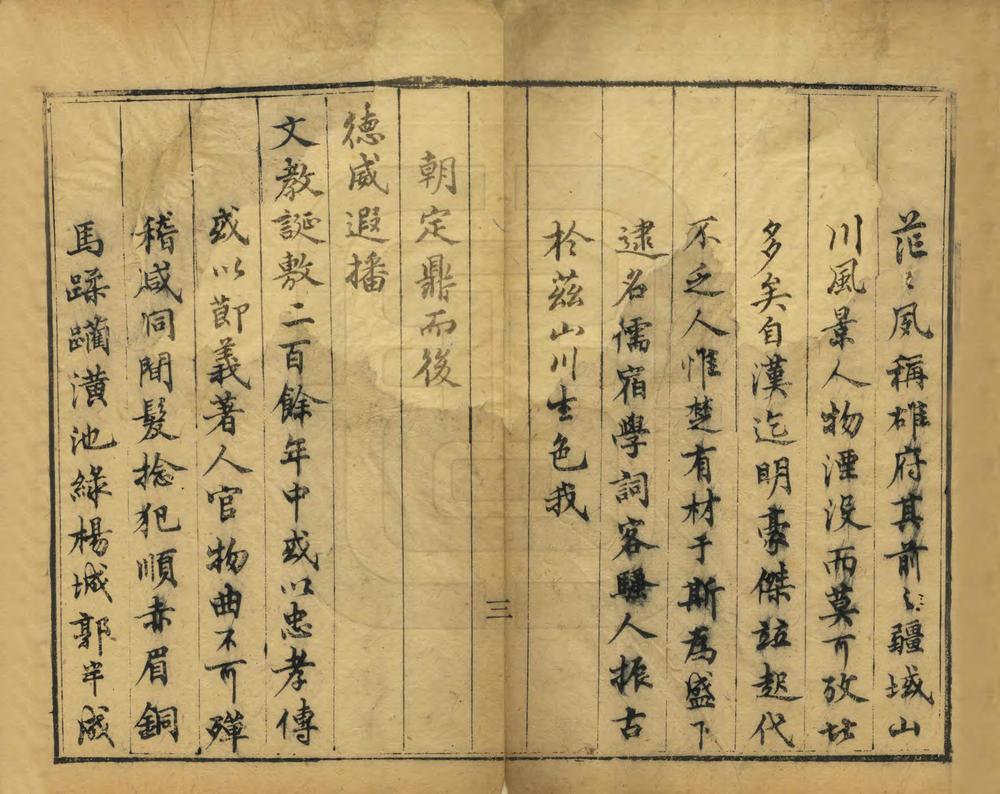 茫〻風稱雄府其前〻疆域山
川風景人物湮没而莫可攷者
多矣自漢迄明豪傑竝起代
不乏人惟楚有材于斯為盛下
逮名儒宿學詞客騷人振古
於茲山川生色我
三
朝定鼎而後
德威遐播
文教誕敷二百餘年中或以忠孝傳
或以節義著人官物曲不可殫
稽咸同間髮捻犯順赤眉銅
馬蹂躪潢池綠楊城郭半成